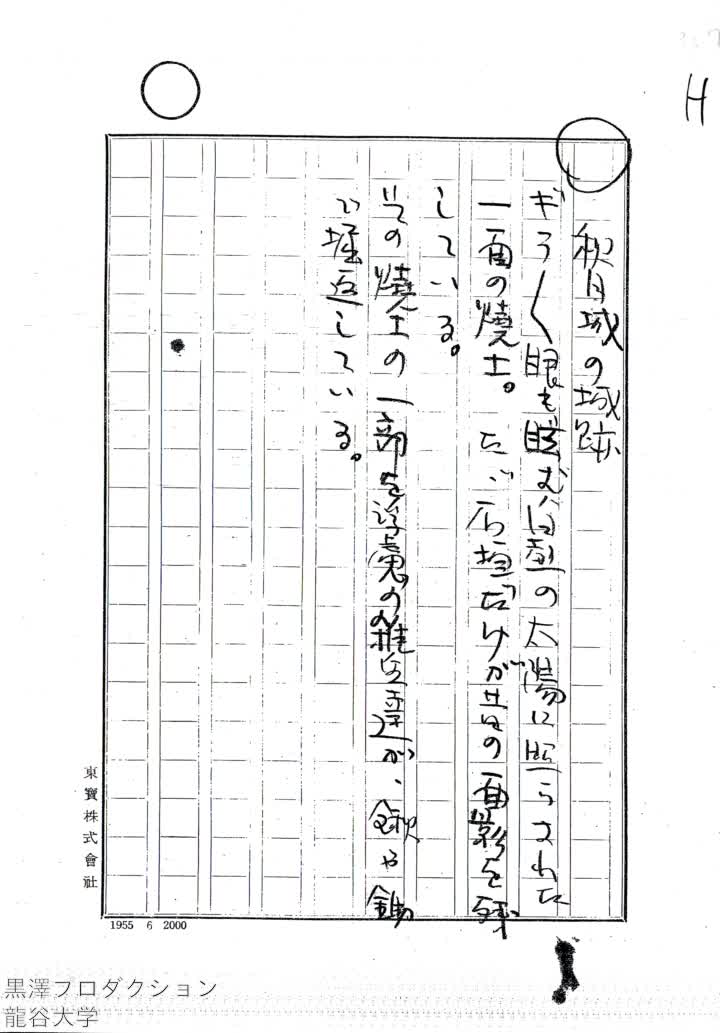 H
秋月城の城跡
ギラ〱眼も眩む白熱の太陽に照らされた
一面の燒土。たゞ石垣だけが昔の面影を残
している。
その燒土の一部を俘虜の雑兵達が、鍬や鋤
で堀返している。
東寶株式會社
1955 6 2000
黒澤プロダクション
龍谷大学